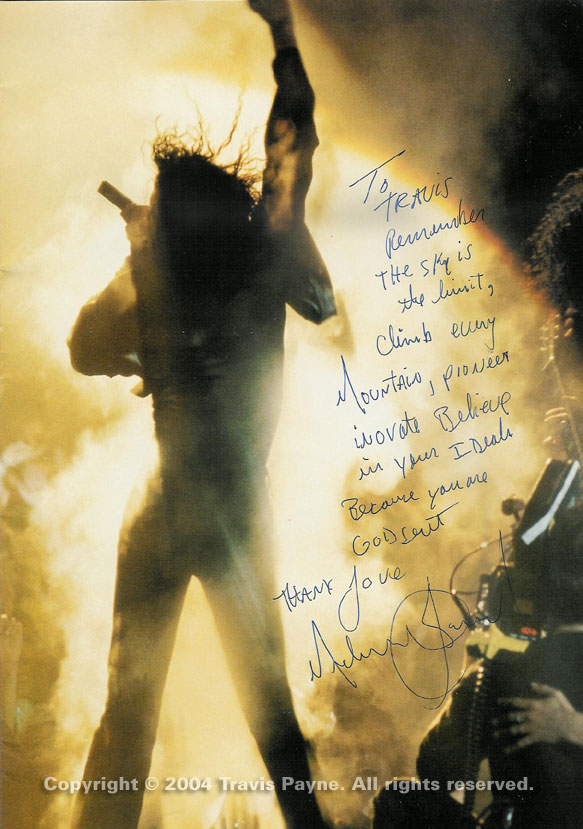 To
TRAVIS
Remember
THE SKY is
the limit,
climb every
MOUNTAIN, pioneer
inovate Believe
in your IDeals
Because you are
GODsent
THANX Love
Michael Jackson
Copyright © 2004 Travis Payne. All rights reserved.